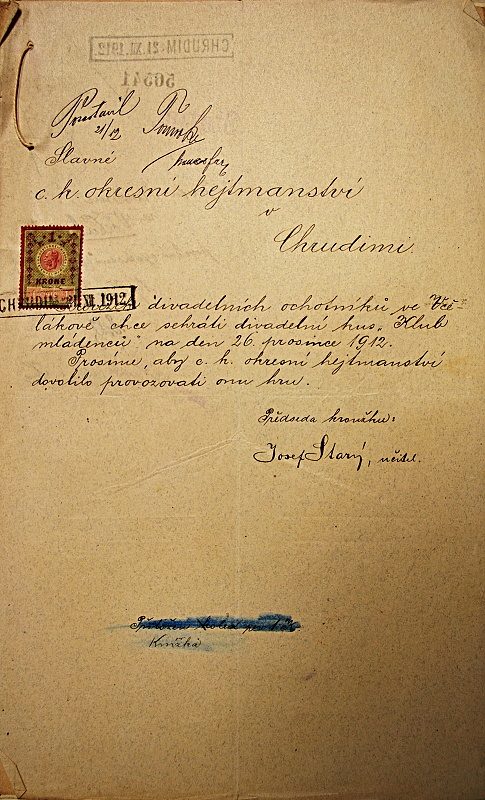 CHRUDIM 21. XII. 1912.
50541
21/12
Slavné
c. k. okresní hejtmanství
v
Chrudimi.
1
KRONE
CHRUDIM 21. XII. 1912
divadelních ochotníků ve Vče-
lákově chce sehráti divadelní kus „Klub
mládenců" na den 26. prosince 1912.
Prosíme, aby c. k. okresní hejtmanství
dovolilo provozovati onu hru.
Předseda kroužku:
Josef Starý, učitel.
Knížka